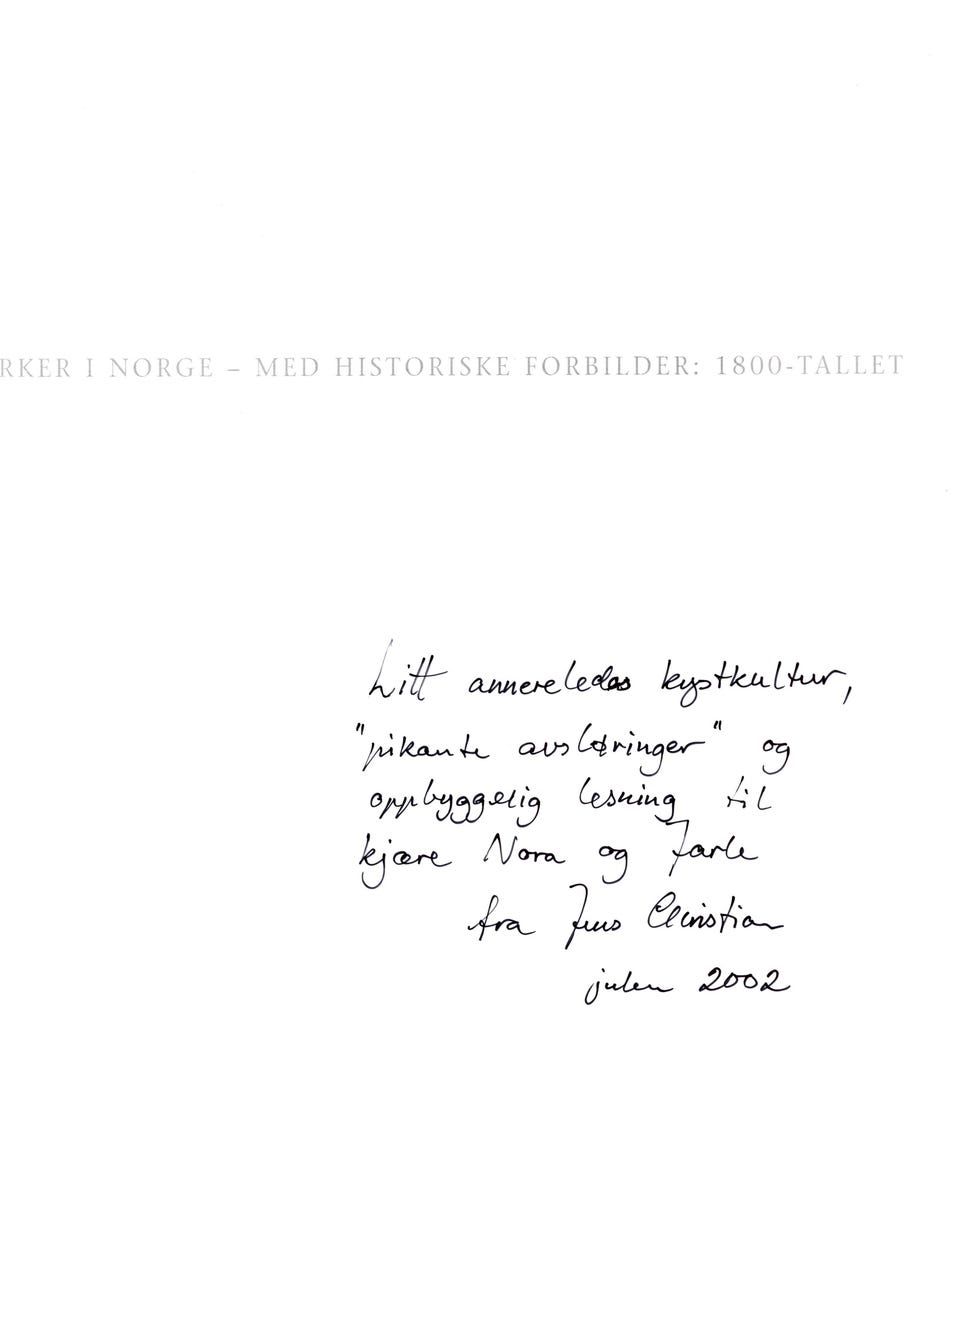 RKER I NORGE – MED HISTORISKE FORBILDER: 1800-TALLET
Litt annereledes kystkultur,
"pikante avsløringer" og
oppbyggelig lesning til
kjære Nora og Jarle
fra Jens Christian
julen 2002